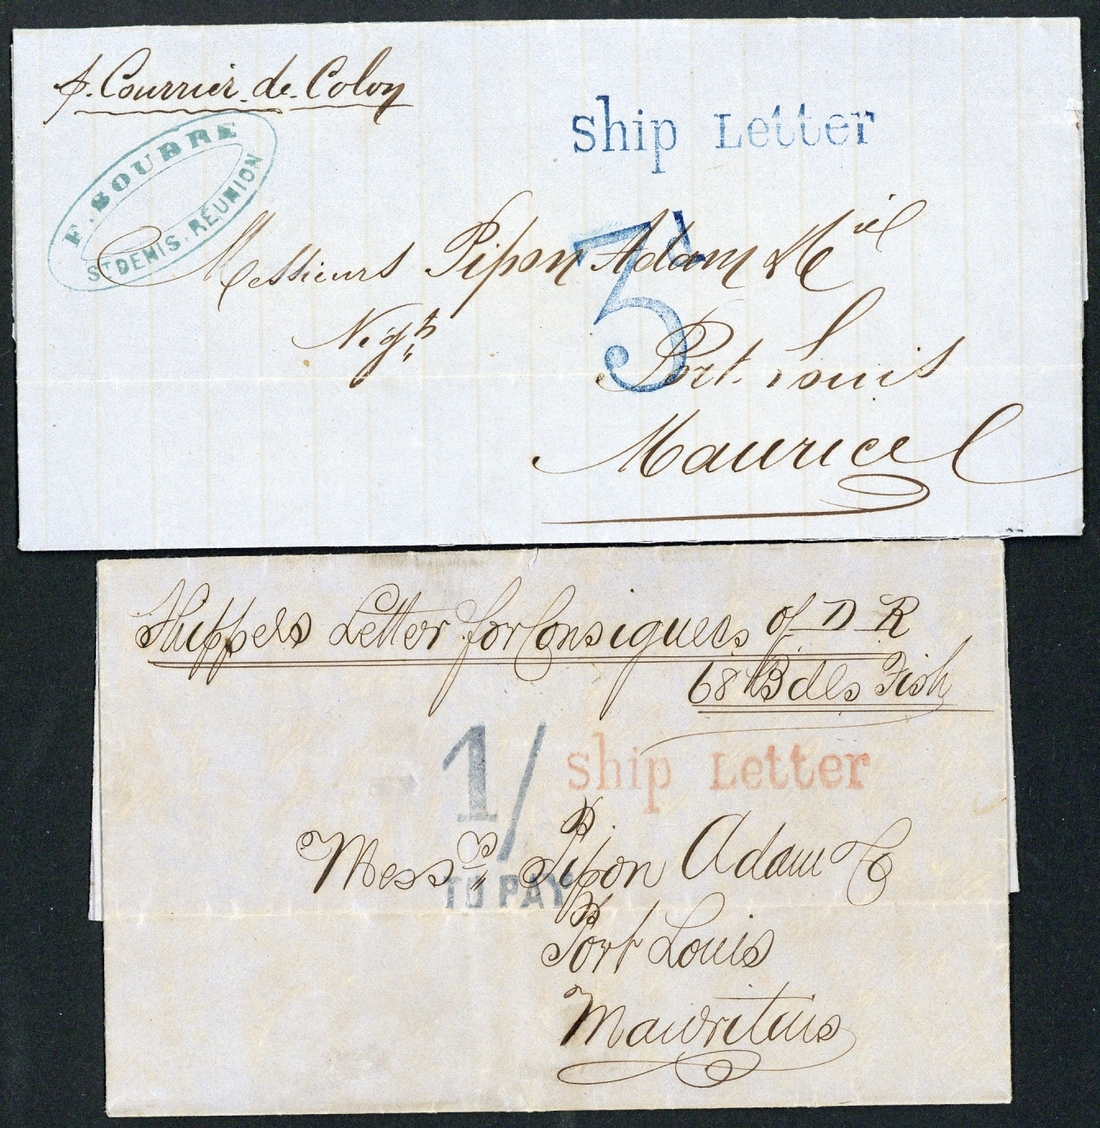 p. Courrier de Colon
F. SOUDRE
ST DENIS. RÉUNION
Ship Letter
3d
Messieurs Pipon Adam & Cie
Negts
Port Louis
Maurice
Shippers Letter for Consignees of D R
68 Bdls Fish
1/
Ship Letter
TO PAY
Messrs Pipon Adam & Co
Port Louis
Mauritius